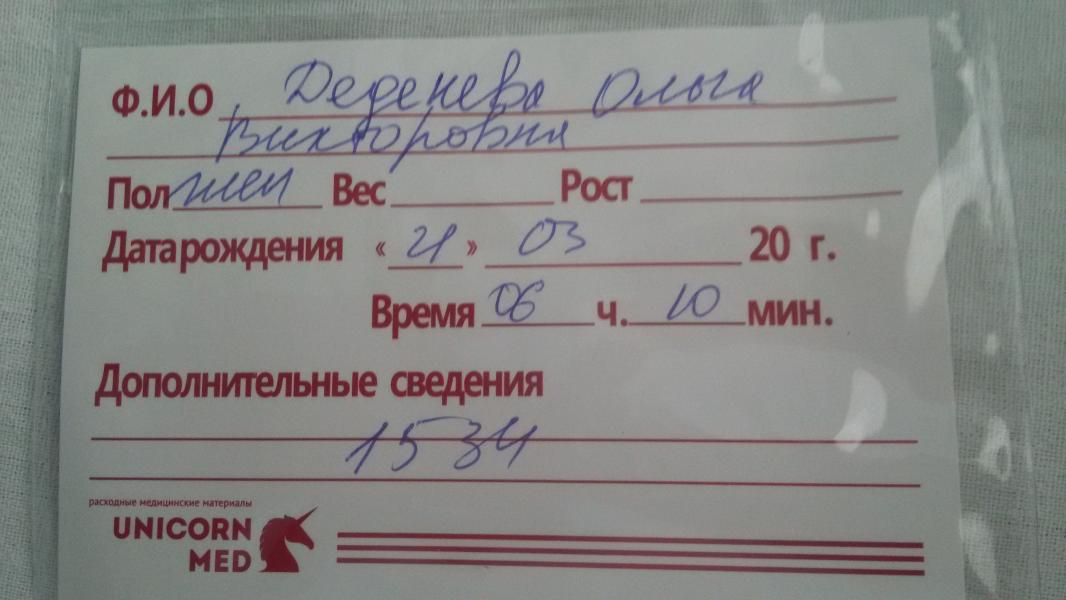 Ф.И.О Деденева Ольга
Викторовна
Пол жен Вес Рост
Дата рождения « 21 » 03 20 г.
Время 06 ч. 10 мин.
Дополнительные сведения
1534
расходные медицинские материалы
UNICORN
MED